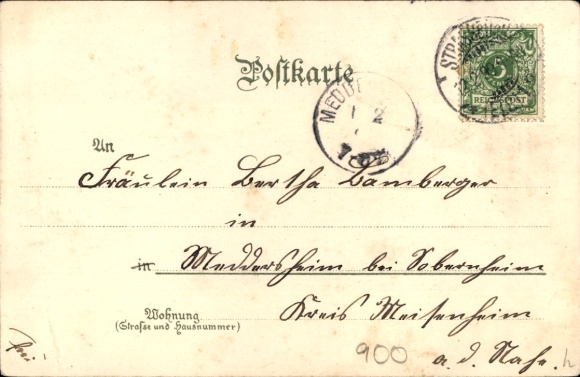 Postkarte
5
REICHSPOST
An
Fräulein Bertha Bamberger
in
in Meddersheim bei Sobernheim
Wohnung
(Strasse und Hausnummer)
Kreis Meisenheim
frei
900
a. d. Nahe.